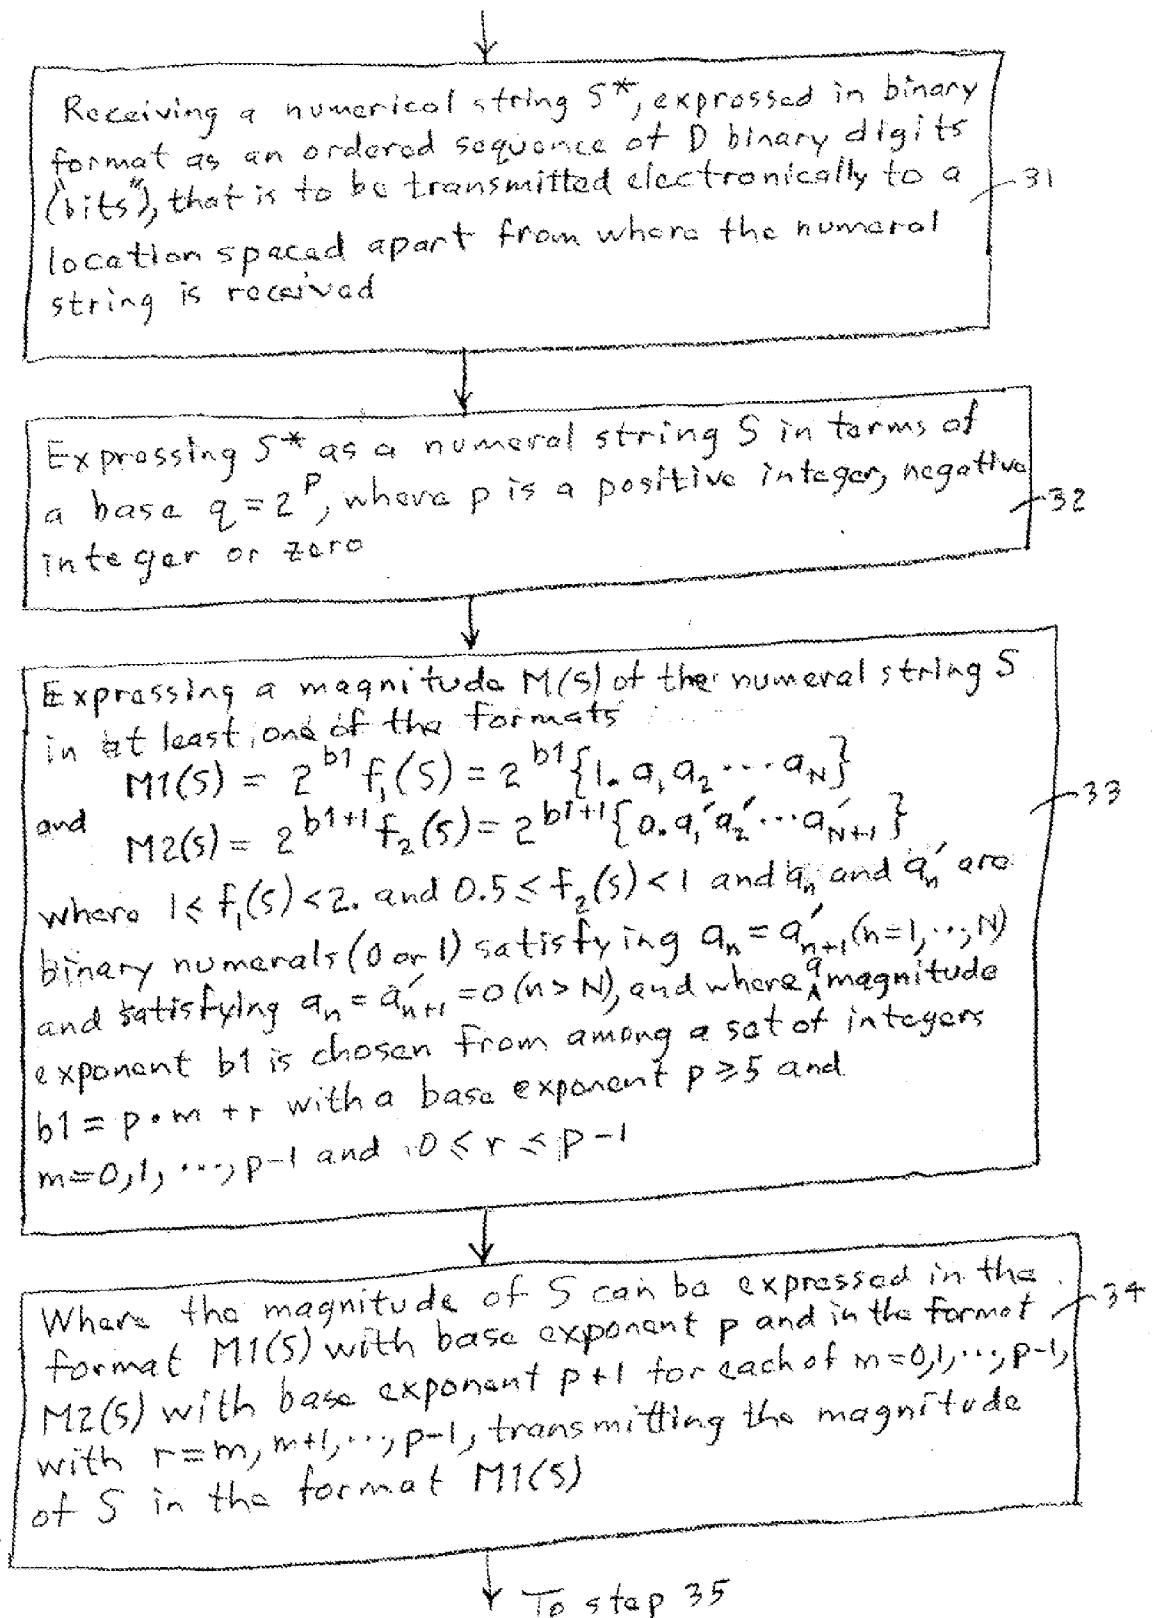 Receiving a numerical string S*, expressed in binary
format as an ordered sequence of D binary digits
("bits"), that is to be transmitted electronically to a
31
location spaced apart from where the numeral
string is received
Expressing S* as a numeral string S in terms of
a base q = 2^p, where p is a positive integer, negative
32
integer or zero
Expressing a magnitude M(S) of the numeral string S
in at least one of the formats
M1(S) = 2^{b1} f₁(S) = 2^{b1}{1.a₁a₂···a_N}
and
33
M2(S) = 2^{b1+1} f₂(S) = 2^{b1+1}{0.a₁′a₂′···a′_{N+1}}
where 1 ≤ f₁(S) < 2. and 0.5 ≤ f₂(S) < 1 and a_n and a_n′ are
binary numerals (0 or 1) satisfying a_n = a′_{n+1} (n=1,··,N)
and satisfying a_n = a′_{n+1} = 0 (n > N), and where a magnitude
exponent b1 is chosen from among a set of integers
b1 = p•m + r with a base exponent p ≥ 5 and
m=0,1,···,p-1 and 0 ≤ r ≤ p-1
Where the magnitude of S can be expressed in the
34
format M1(S) with base exponent p and in the format
M2(S) with base exponent p+1 for each of m=0,1,···,p-1,
with r=m, m+1,···,p-1, transmitting the magnitude
of S in the format M1(S)
To step 35